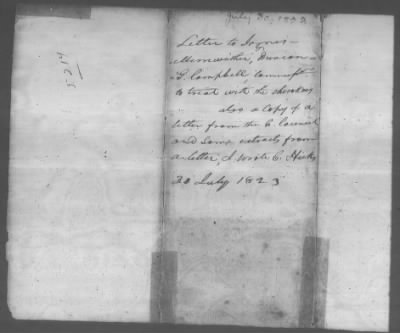 July 30, 1823
Letter to Joyner
Meriwether, Duncan
G. Campbell, commissr
to treat with the Cherokees
also a copy of a
letter from the C. Council
and some extracts from
a letter, I wrote C. Hicks
30 July 1823